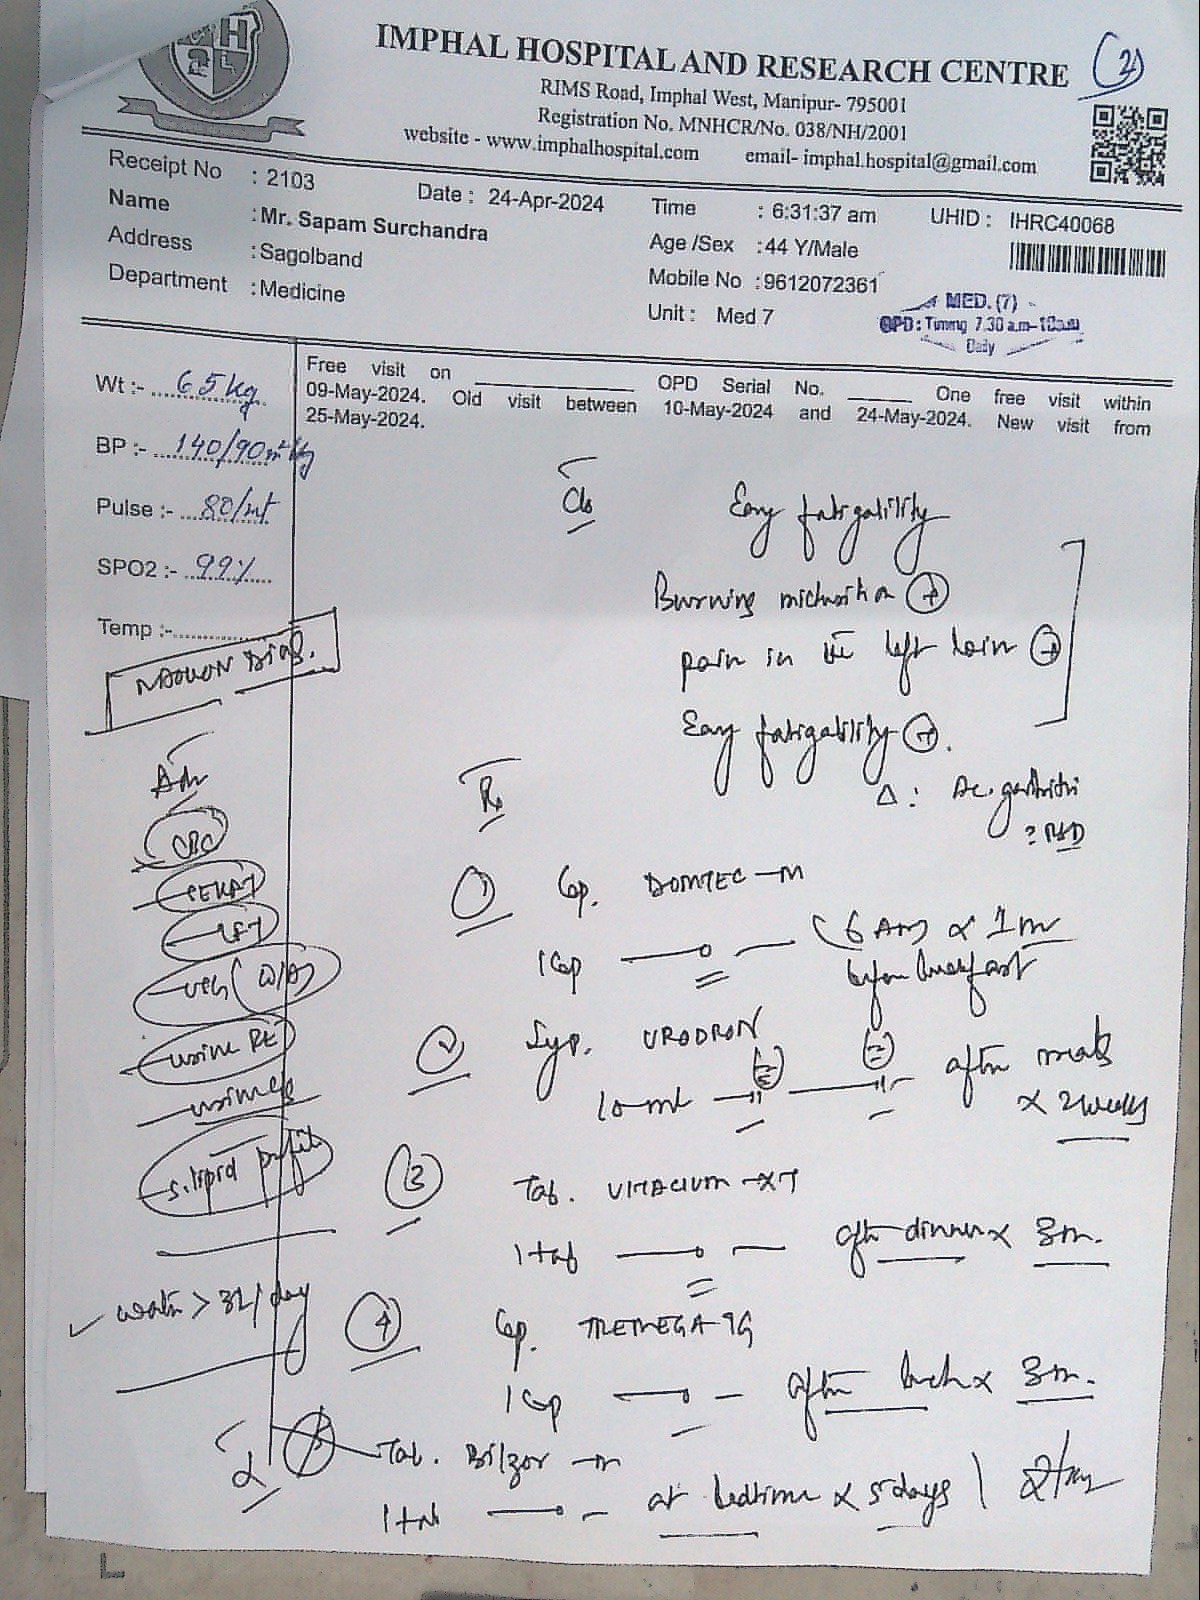 IMPHAL HOSPITAL AND RESEARCH CENTRE
(2)
RIMS Road, Imphal West, Manipur- 795001
Registration No. MNHCR/No. 038/NH/2001
website - www.imphalhospital.com email- imphal.hospital@gmail.com
Receipt No : 2103 Date : 24-Apr-2024 Time : 6:31:37 am UHID : IHRC40068
Name : Mr. Sapam Surchandra Age /Sex : 44 Y/Male
Address : Sagolband Mobile No : 9612072361
Department : Medicine Unit : Med 7
MED. (7)
OPD : Timing 7.30 a.m-10a.m
Daily
Free visit on ____________ OPD Serial No. _____ One free visit within
09-May-2024. Old visit between 10-May-2024 and 24-May-2024. New visit from
25-May-2024.
Wt :- 65 kg
BP :- 140/90
Pulse :- 80/mt
SPO2 :- 99%
Temp :-
C/o Easy fatigability
Burning micturition (+)
pain in the left loin (+)
Easy fatigability (+).
Δ : Ac. gastritis
Adv
CBC
LFT
urine RE
s. lipid profile
water > 3L/day
Rx
1 Cap. DOMTEC-M
1 Cap (6 AM) x 1m
before breakfast
2 Syp. URODRON
10 ml after meals
x 2 weeks
3 Tab. VITACIUM-XT
1 tab after dinner x 3m.
4 Cap. TREMEGA-9G
1 Cap after lunch x 3m.
5 Tab. Bilzor-M
1 tab at bedtime x 5 days